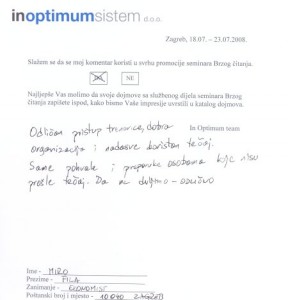 inoptimumsistem d.o.o.
Zagreb, 18.07. – 23.07.2008.
Slažem se da se moj komentar koristi u svrhu promocije seminara Brzog čitanja.
DA NE
Najljepše Vas molimo da svoje dojmove sa službenog dijela seminara Brzog
čitanja zapišete ispod, kako bismo Vaše impresije uvrstili u katalog dojmova.
In Optimum team
Odličan pristup trenerice, dobra
organizacija i nadasve koristan tečaj.
Same pohvale i preporuke osobama koje nisu
prošle tečaj. Da ne duljimo - odlično
Ime - MIRO
Prezime - FILA
Zanimanje - EKONOMIST
Poštanski broj i mjesto - 10 040 ZAGREB